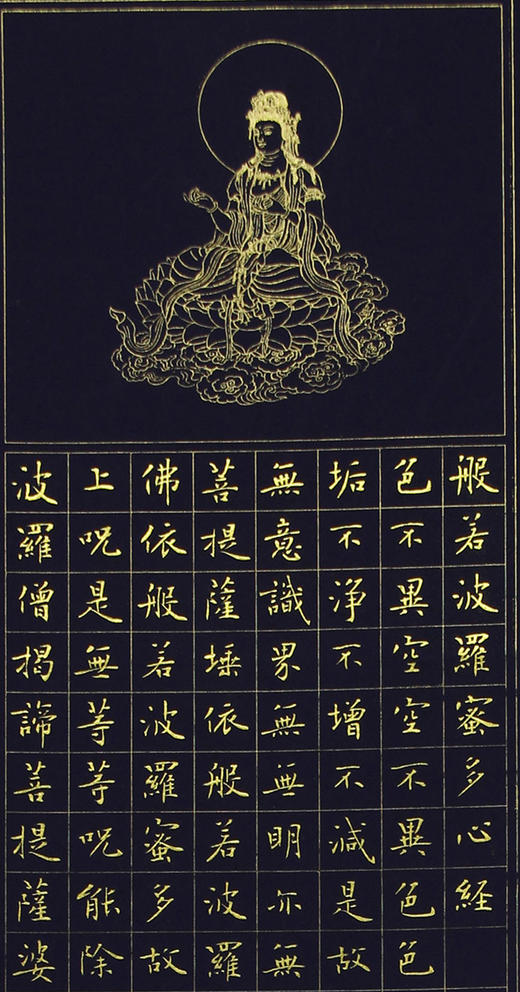 般若波羅蜜多心経
色不異空空不異色色
垢不浄不増不減是故
無意識界無無明亦無
菩提薩埵依般若波羅
佛依般若波羅蜜多故
上呪是無等等呪能除
波羅僧掲諦菩提薩婆